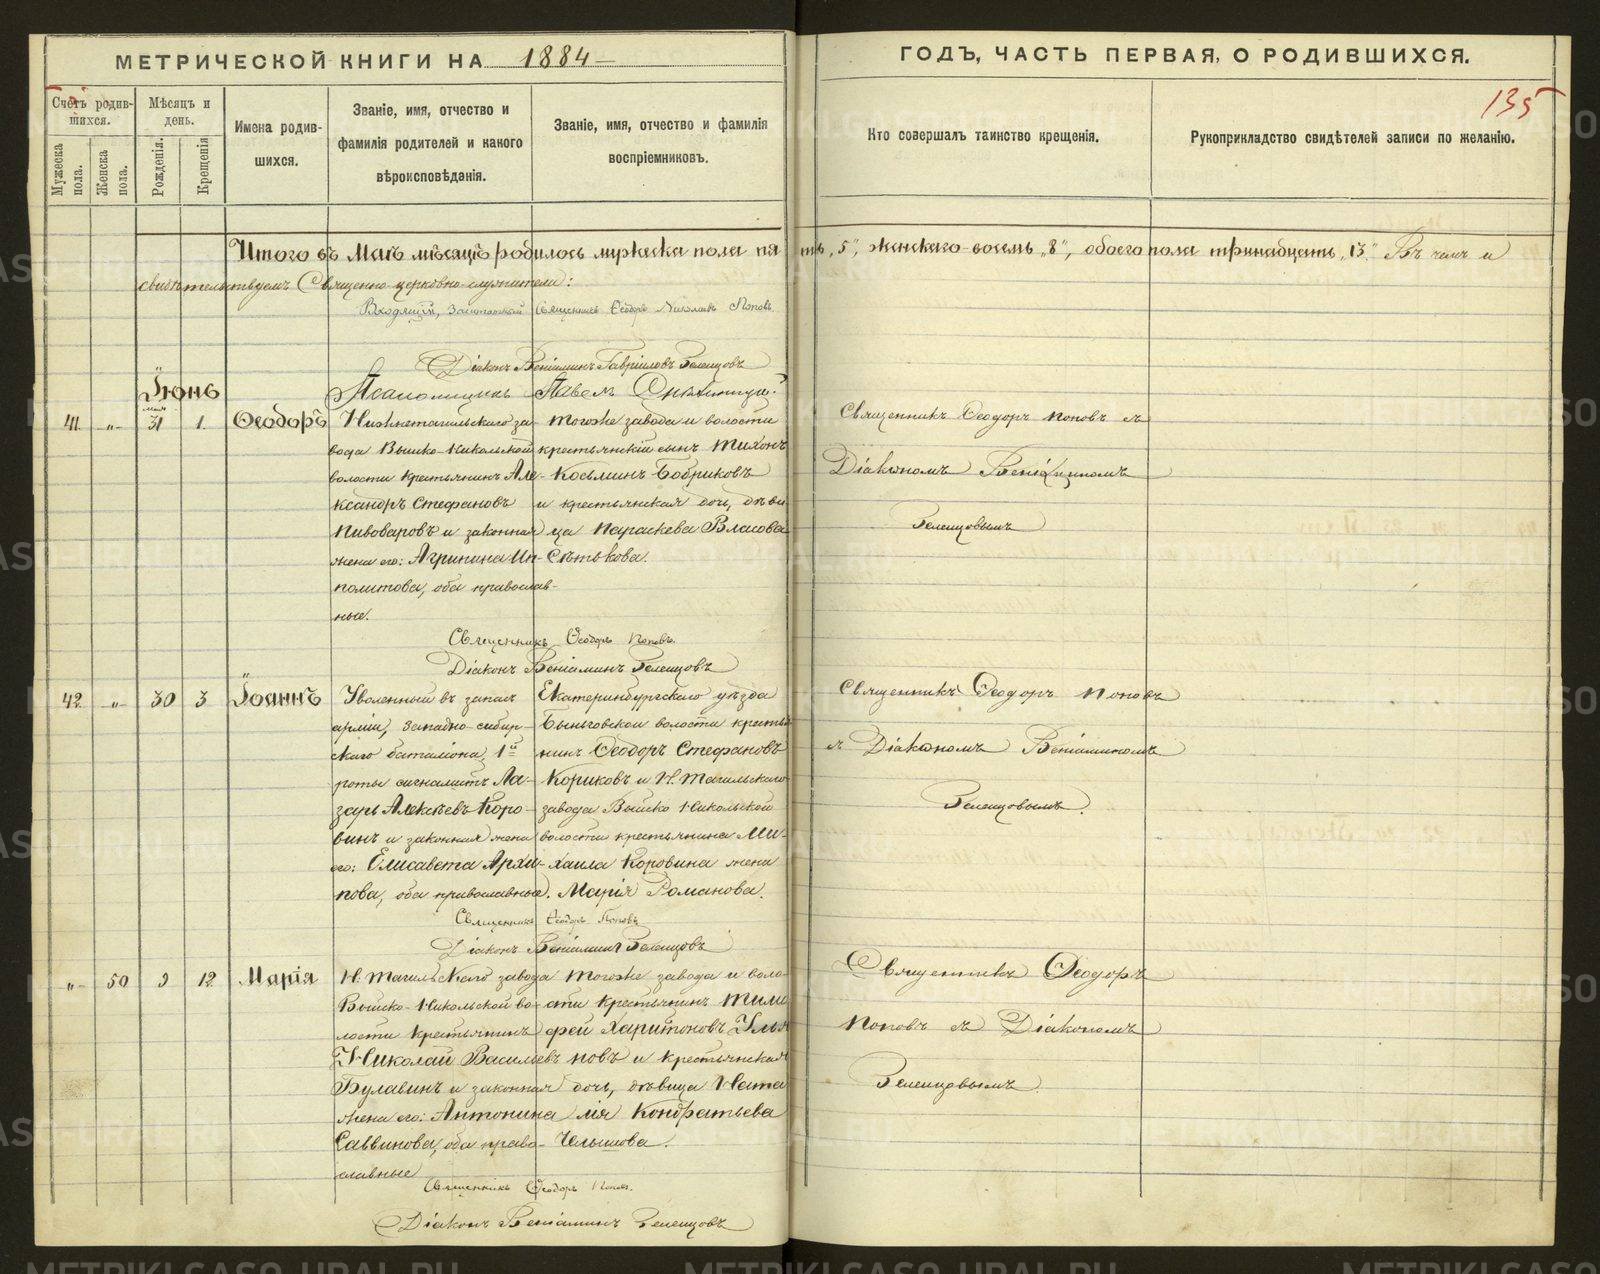 МЕТРИЧЕСКОЙ КНИГИ НА 1884 ГОДЪ, ЧАСТЬ ПЕРВАЯ, О РОДИВШИХСЯ.
135
Счетъ родив-
шихся.
Мужеска пола.
Женска пола.
Мѣсяцъ и
день.
Рожденія.
Крещенія
Имена родив-
шихся.
Званіе, имя, отчество и
фамилія родителей и какого
вѣроисповѣданія.
Званіе, имя, отчество и фамилія
воспріемниковъ.
Кто совершалъ таинство крещенія.
Рукоприкладство свидѣтелей записи по желанію.
Итого въ Маѣ мѣсяцѣ родилось мужеска пола пять „5“, женскаго восемь „8“, обоего пола тринадцать „13“. Въ чемъ и
свидѣтельствуемъ Священно-церковно-служители:
Священникъ Ѳеодоръ Поповъ
Діаконъ Веніаминъ Гавріиловъ Зеленцовъ
Псаломщикъ Павелъ
Іюнь
41 „ мая 31 1. Ѳеодоръ
Нижнетагильскаго за-
вода Выйско-Никольской
волости крестьянинъ Але-
ксандръ Стефановъ
Пивоваровъ и законная
жена его: Агрипина Ип-
политова, оба православ-
ные.
тогоже завода и волости
крестьянскій сынъ Тихонъ
Косьминъ Бобриковъ
и крестьянская дочь, дѣви
ца Параскева Власова
Сѣтькова.
Священникъ Ѳеодоръ Поповъ съ
Діакономъ Веніаминомъ
Зеленцовымъ
Священникъ Ѳеодоръ Поповъ.
Діаконъ Веніаминъ Зеленцовъ
42 „ 30 3 Іоаннъ
Уволенный въ запасъ
арміи, Западно-сибир-
скаго баталіона, 1й
роты сигналистъ Ла-
зарь Алексѣевъ Коро-
винъ и законная жена
его: Елисавета Архи-
пова, оба православные.
Екатеринбургскаго уѣзда
Быньговской волости крестья
нинъ Ѳеодоръ Стефановъ
Кориковъ и Н. Тагильскаго
завода Выйско Никольской
волости крестьянина Ми-
хаила Коровина жена
Марія Романова.
Священникъ Ѳеодоръ Поповъ
съ Діакономъ Веніаминомъ
Зеленцовымъ.
Священникъ Ѳеодоръ Поповъ
Діаконъ Веніаминъ Зеленцовъ
„ 50 9 12 Марія
Н. Тагильскаго завода
Выйско-Никольской во-
лости крестьянинъ
Николай Васильевъ
Булавинъ и законная
жена его: Антонина
Саввинова, оба право-
славные
тогоже завода и воло-
сти крестьянинъ Тимо
фей Харитоновъ Улья
новъ и крестьянская
дочь, дѣвица Ната
лія Кондратьева
Челышова.
Священникъ Ѳеодоръ
Поповъ съ Діакономъ
Зеленцовымъ.
Священникъ Ѳеодоръ Поповъ.
Діаконъ Веніаминъ Зеленцовъ
METRIKI.GASO-URAL.RU